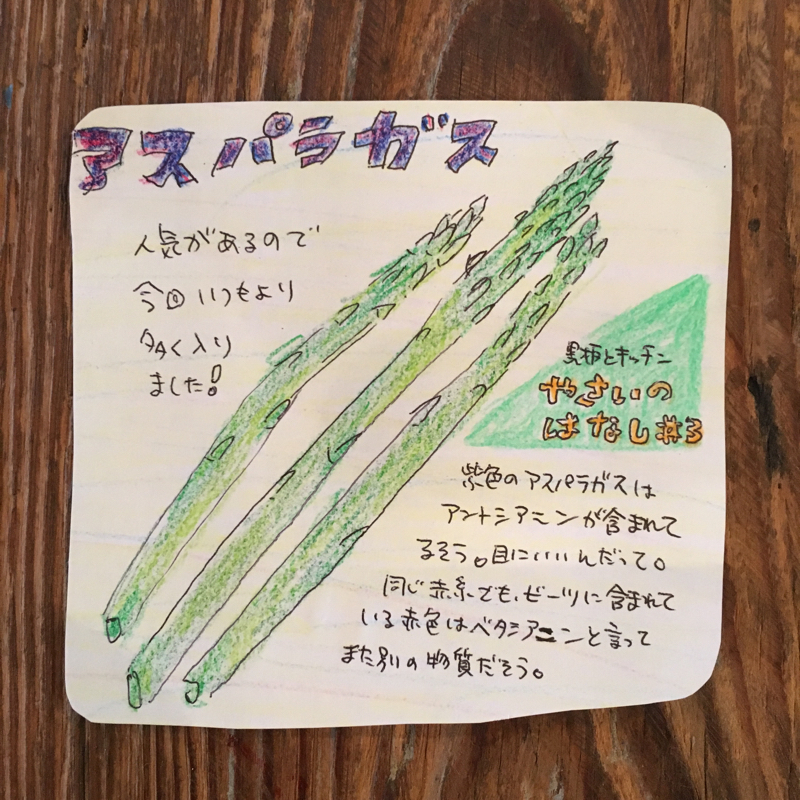 アスパラガス
人気があるので
今回いつもより
多く入り
ました!
黒柿とキッチン
やさいの
はなし#3
紫色のアスパラガスは
アントシアニンが含まれて
るそう。目にいいんだって。
同じ赤系でも、ビーツに含まれて
いる赤色はベタシアニンと言って
また別の物質だそう。